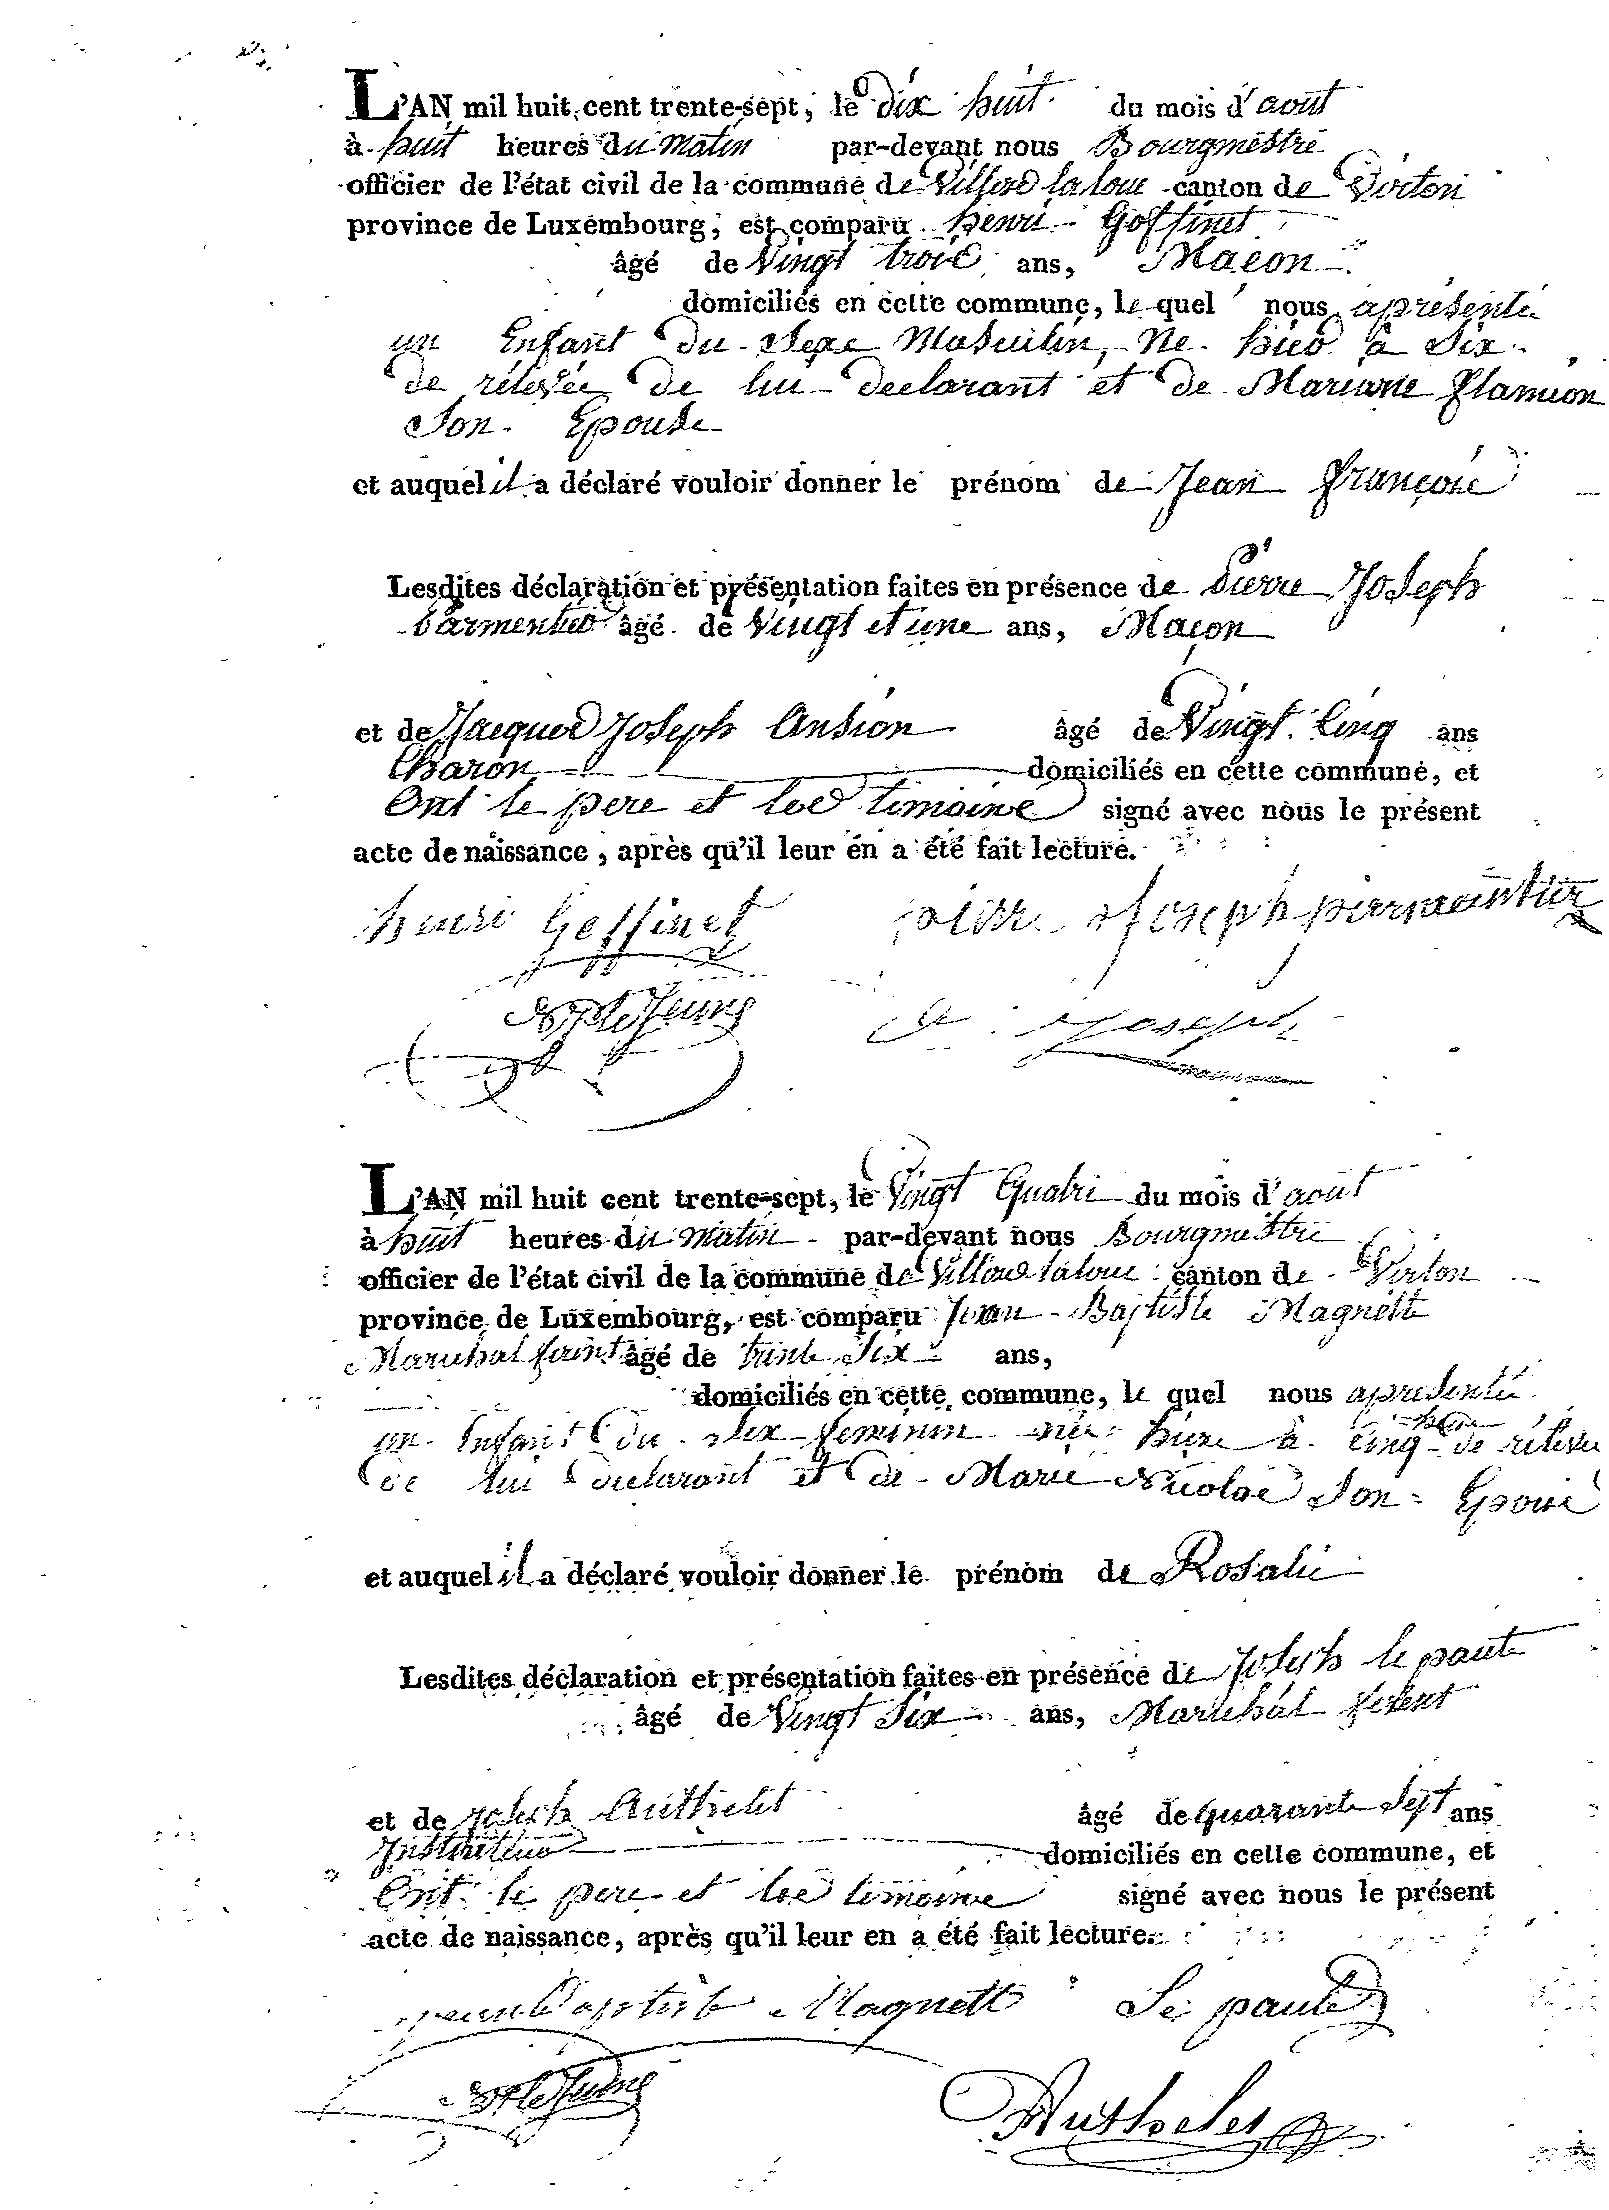 L'AN mil huit cent trente-sept, le dix huit du mois d'août
à huit heures du matin par-devant nous Bourgmestre
officier de l'état civil de la commune de Villers la loue canton de Virton
province de Luxembourg, est comparu henri Goffinet
âgé de Vingt trois ans, Macon
domiciliés en cette commune, le quel nous apresenté
un Enfant du Sexe Masculin, Né hier à Six
de rélevée de lui declarant et de Mariane flamion
Son Epouse
et auquel il a déclaré vouloir donner le prénom de Jean françois
Lesdites déclaration et présentation faites en présence de Pierre Joseph
Parmentier âgé de Vingt et une ans, Maçon
et de Jacques Joseph Ansion âgé de Vingt Cinq ans
Charon domiciliés en cette commune, et
Ont le pere et les temoins signé avec nous le présent
acte de naissance, après qu'il leur en a été fait lecture.
henri Goffinet pierre Joseph
Joseph
L'AN mil huit cent trente-sept, le Vingt Quatre du mois d'août
à huit heures du matin par-devant nous Bourgmestre
officier de l'état civil de la commune de Villers laloue canton de Virton
province de Luxembourg, est comparu Jean Baptiste Magnette
Marechal ferint âgé de trente Six ans,
domiciliés en cette commune, le quel nous apresenté
un Enfant du Sex feminin née hiere à cinq heure de rélevée
de lui declarant et de Marie Nicolas Son Epouse
et auquel il a déclaré vouloir donner le prénom de Rosalie
Lesdites déclaration et présentation faites en présence de Joseph le paute
âgé de Vingt Six ans, Marechal ferent
et de Joseph Authelet âgé de quarante Sept ans
Instituteur domiciliés en cette commune, et
Ont le pere et les temoins signé avec nous le présent
acte de naissance, après qu'il leur en a été fait lecture.
jean Baptiste Magnette Le paute
Authelet